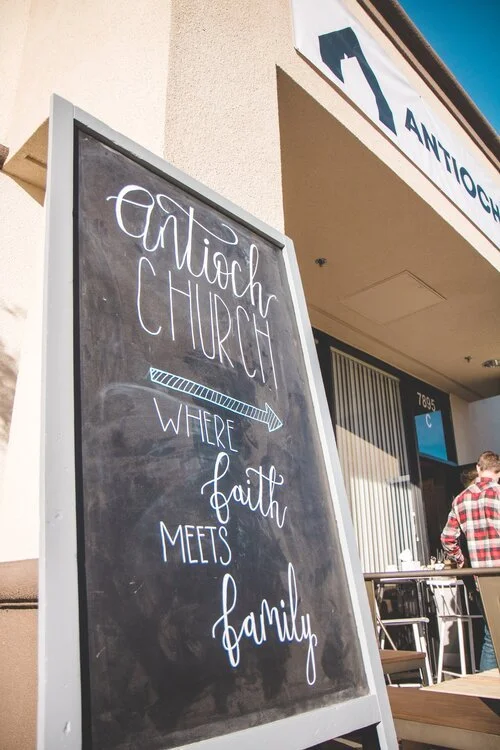 ANTIOCH
Antioch
CHURCH
WHERE
faith
MEETS
family
7895
C